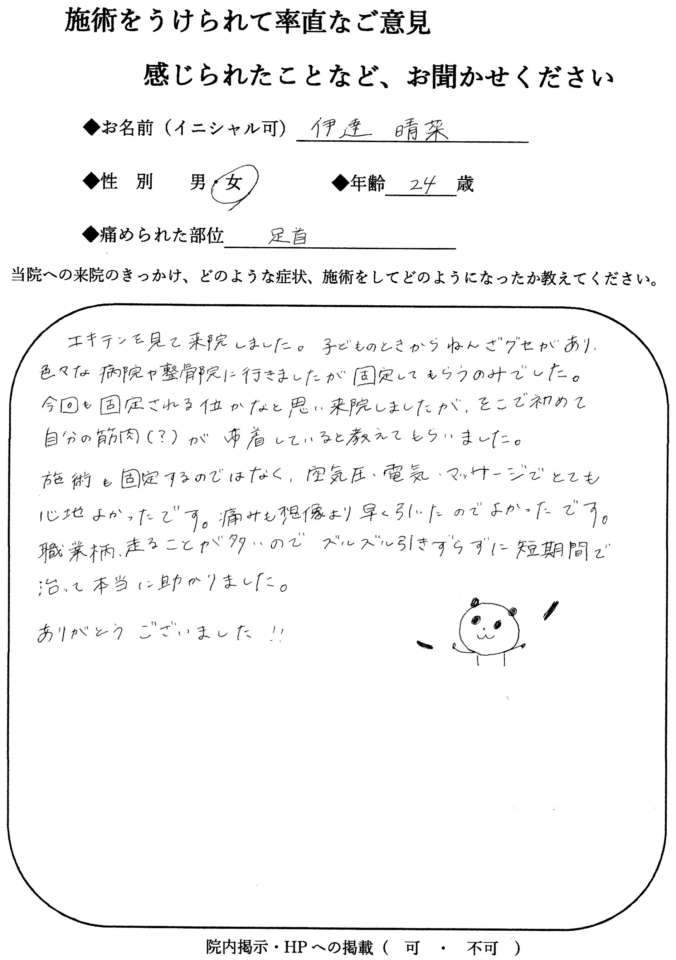 施術をうけられて率直なご意見
感じられたことなど、お聞かせください
◆お名前（イニシャル可） 伊達 晴菜
◆性 別 男・女
◆年齢 24 歳
◆痛められた部位 足首
当院への来院のきっかけ、どのような症状、施術をしてどのようになったか教えてください。
エキテンを見て来院しました。子どものときからねんざグセがあり、
色々な病院や整骨院に行きましたが固定してもらうのみでした。
今回も固定される位かなと思い来院しましたが、そこで初めて
自分の筋肉(?)が 着していると教えてもらいました。
施術も固定するのではなく、空気圧・電気・マッサージでとても
心地よかったです。痛みも想像より早く引いたのでよかったです。
職業柄、走ることが多いので ズルズル引きずらずに短期間で
治って本当に助かりました。
ありがとうございました!!
院内掲示・HPへの掲載（ 可 ・ 不可 ）